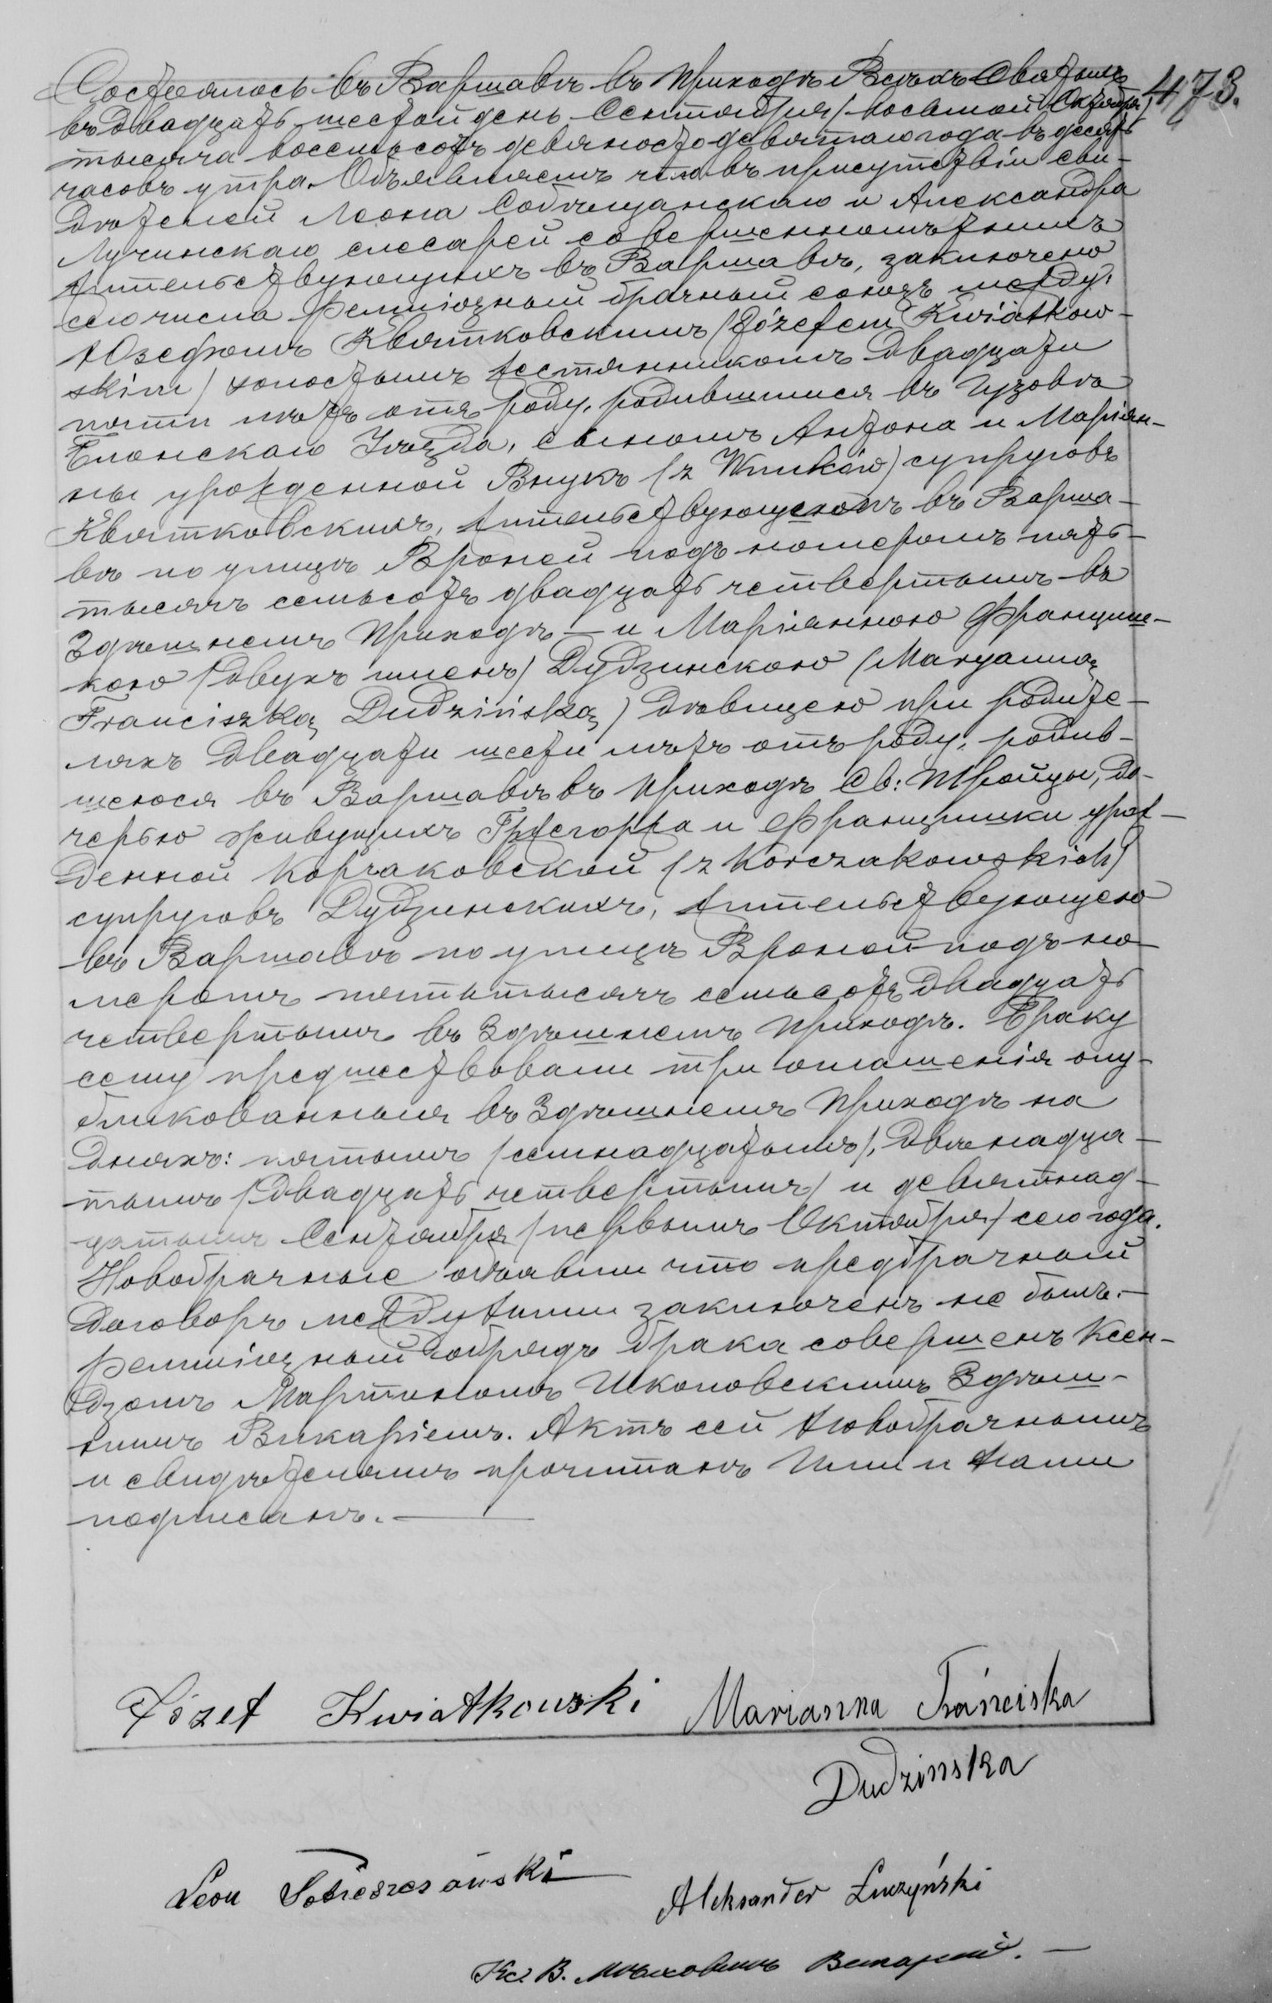 Состоялось въ Варшавѣ въ приходѣ Всѣхъ Святыхъ 473.
въ двадцать шестой день Сентября /восьмой Октября/
тысяча восемьсотъ девяносто девятаго года въ десять
часовъ утра. Объявляемъ что въ присутствіи сви-
дѣтелей Леона Собѣщанскаго и Александра
Лучинскаго слесарей совершеннолѣтнихъ
жительствующихъ въ Варшавѣ, заключено
сего числа религіозный брачный союзъ между:
Юзефомъ Квятковскимъ /Józefem Kwiatkow-
skim/ холостымъ жестянникомъ двадцати
пяти лѣтъ отъ роду, родившимся въ Гузовѣ
Блонскаго Уѣзда, сыномъ Антона и Маріян-
ны урожденной Внукъ (z Wnuków) супруговъ
Квятковскихъ, жительствующемъ въ Варша-
вѣ по улицѣ Вроней подъ номеромъ пять
тысячъ семьсотъ двадцать четвертымъ въ
здѣшнемъ приходѣ — и Маріянною Францишк-
кою /двухъ именъ/ Дудзинскою /Maryanną
Franciszką Dudzińską/ дѣвицею при родите-
ляхъ двадцати шести лѣтъ отъ роду, родив-
шеюся въ Варшавѣ въ приходѣ Св: Тройцы, до-
черью живущихъ Гржегоржа и Францишки урож-
денной Корчаковской (z Korczakowskich)
супруговъ Дудзинскихъ, жительствующею
въ Варшавѣ по улицѣ Вроней подъ но-
меромъ пять тысячъ семьсотъ двадцать
четвертымъ въ здѣшнемъ приходѣ. Браку
сему предшествовали три оглашенія опу-
бликованныя въ здѣшнемъ приходѣ на
дняхъ: пятымъ /семнадцатымъ/, двѣнадца-
тымъ /двадцать четвертымъ/ и девятнад-
цатымъ Сентября /первымъ Октября/ сего года.
Новобрачные объявили что предбрачный
договоръ между ними заключенъ не былъ. —
Религіозный обрядъ брака совершенъ Ксен-
дзомъ Мартиномъ Шкоповскимъ Здѣш-
нимъ Викаріемъ. Актъ сей Новобрачнымъ
и свидѣтелямъ прочитанъ Ими и Нами
подписанъ. —
Józef Kwiatkowski Marianna Franciska
Dudzinska
Leon Sobieszczański
Aleksander Łuczyński
Кс. В. Викарій. —